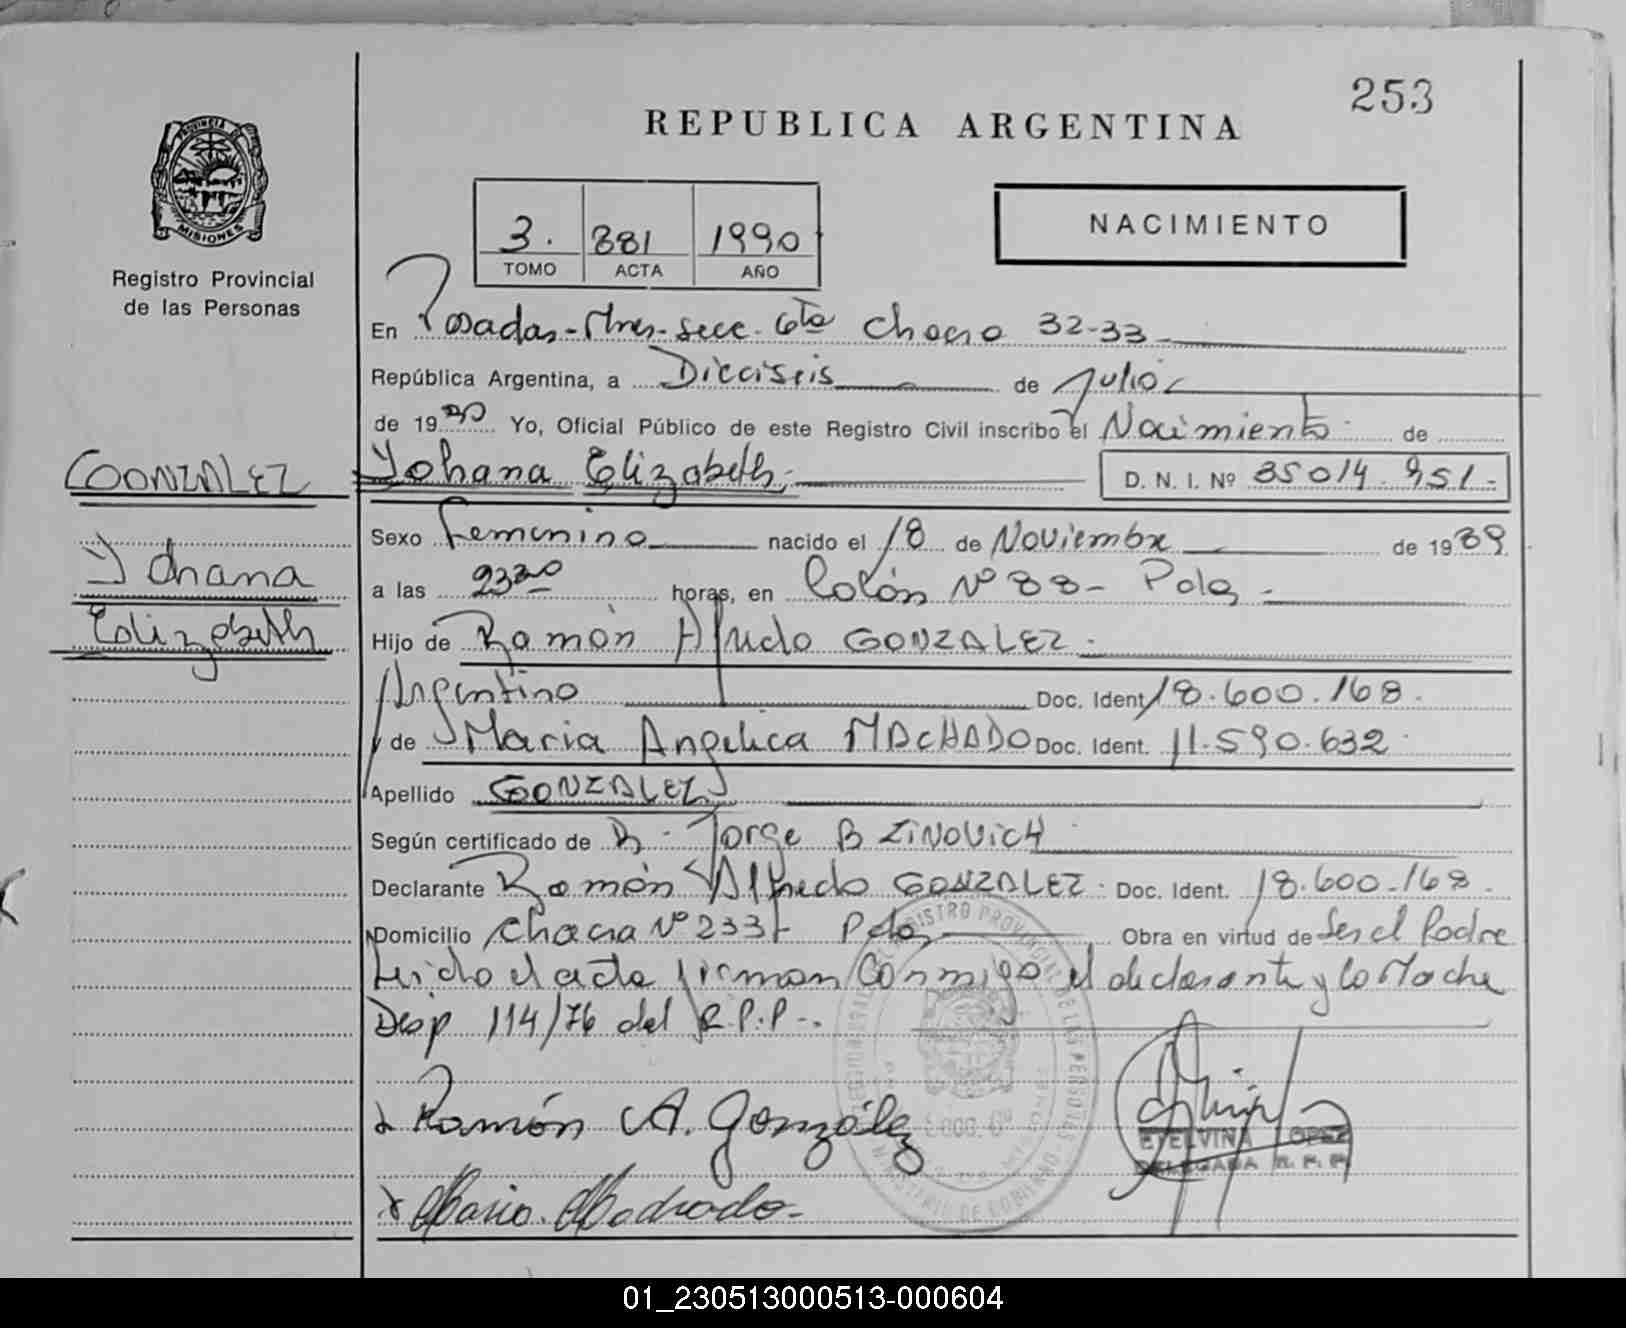 253
REPUBLICA ARGENTINA
PROVINCIA DE
MISIONES
Registro Provincial
de las Personas
3. 881 1990
TOMO ACTA AÑO
NACIMIENTO
En Posadas-Mnes-Secc. 6ta Chacra 32-33
República Argentina, a Dieciseis de Julio
de 1990 Yo, Oficial Público de este Registro Civil inscribo el Nacimiento de
GONZALEZ
Yohana Elizabeth D. N. I. Nº 35014.951
Yohana
Elizabeth
Sexo Femenino nacido el 18 de Noviembre de 1989
a las 2330 horas, en Colón Nº 88- Pdas
Hijo de Ramón Alfredo GONZALEZ
Argentino Doc. Ident 18.600.168.
y de Maria Angelica MACHADO Doc. Ident. 11.590.632
Apellido GONZALEZ
Según certificado de Jorge B ZINOVICH
Declarante Ramón Alfredo GONZALEZ Doc. Ident. 18.600.168.
Domicilio Chacra Nº 233 Pdas Obra en virtud de Ser el Padre
Leido el acta firman Conmigo el declarante y la Madre
Disp 114/76 del R.P.P.
REGISTRO PROVINCIAL DE LAS PERSONAS
MINISTERIO DE GOBIERNO
Ramón A. González
ETELVINA LOPEZ
DELEGADA R. P. P.
Maria Machado
01_230513000513-000604